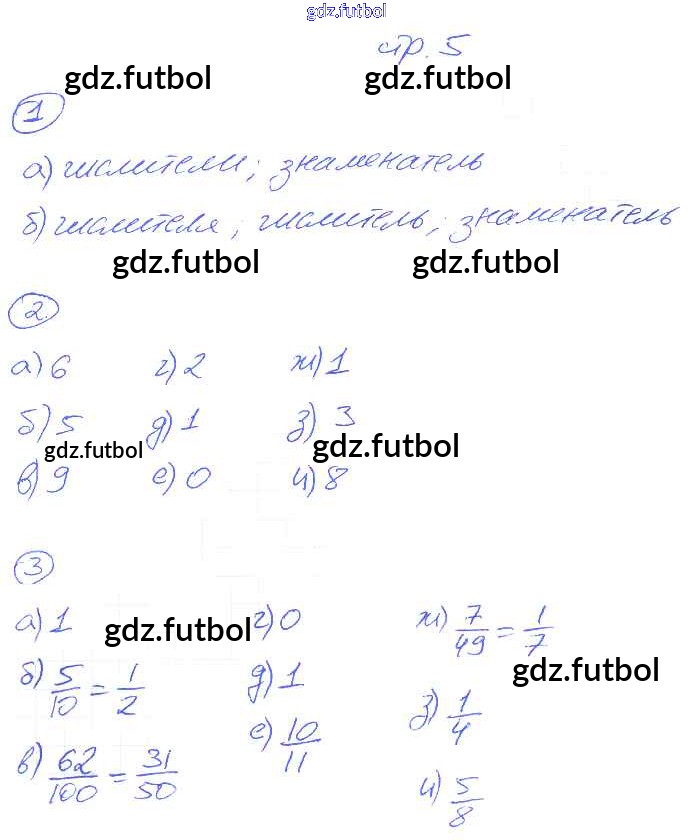 gdz.futbol
стр. 5
gdz.futbol gdz.futbol
1
а) числители; знаменатель
б) числителя; числитель; знаменатель
gdz.futbol gdz.futbol
2
а) 6 г) 2 ж) 1
б) 5 д) 1 з) 3
gdz.futbol gdz.futbol
в) 9 е) 0 и) 8
3
а) 1 г) 0 ж) 7/49 = 1/7
gdz.futbol
б) 5/10 = 1/2 д) 1 з) 1/4
gdz.futbol
в) 62/100 = 31/50 е) 10/11 и) 5/8